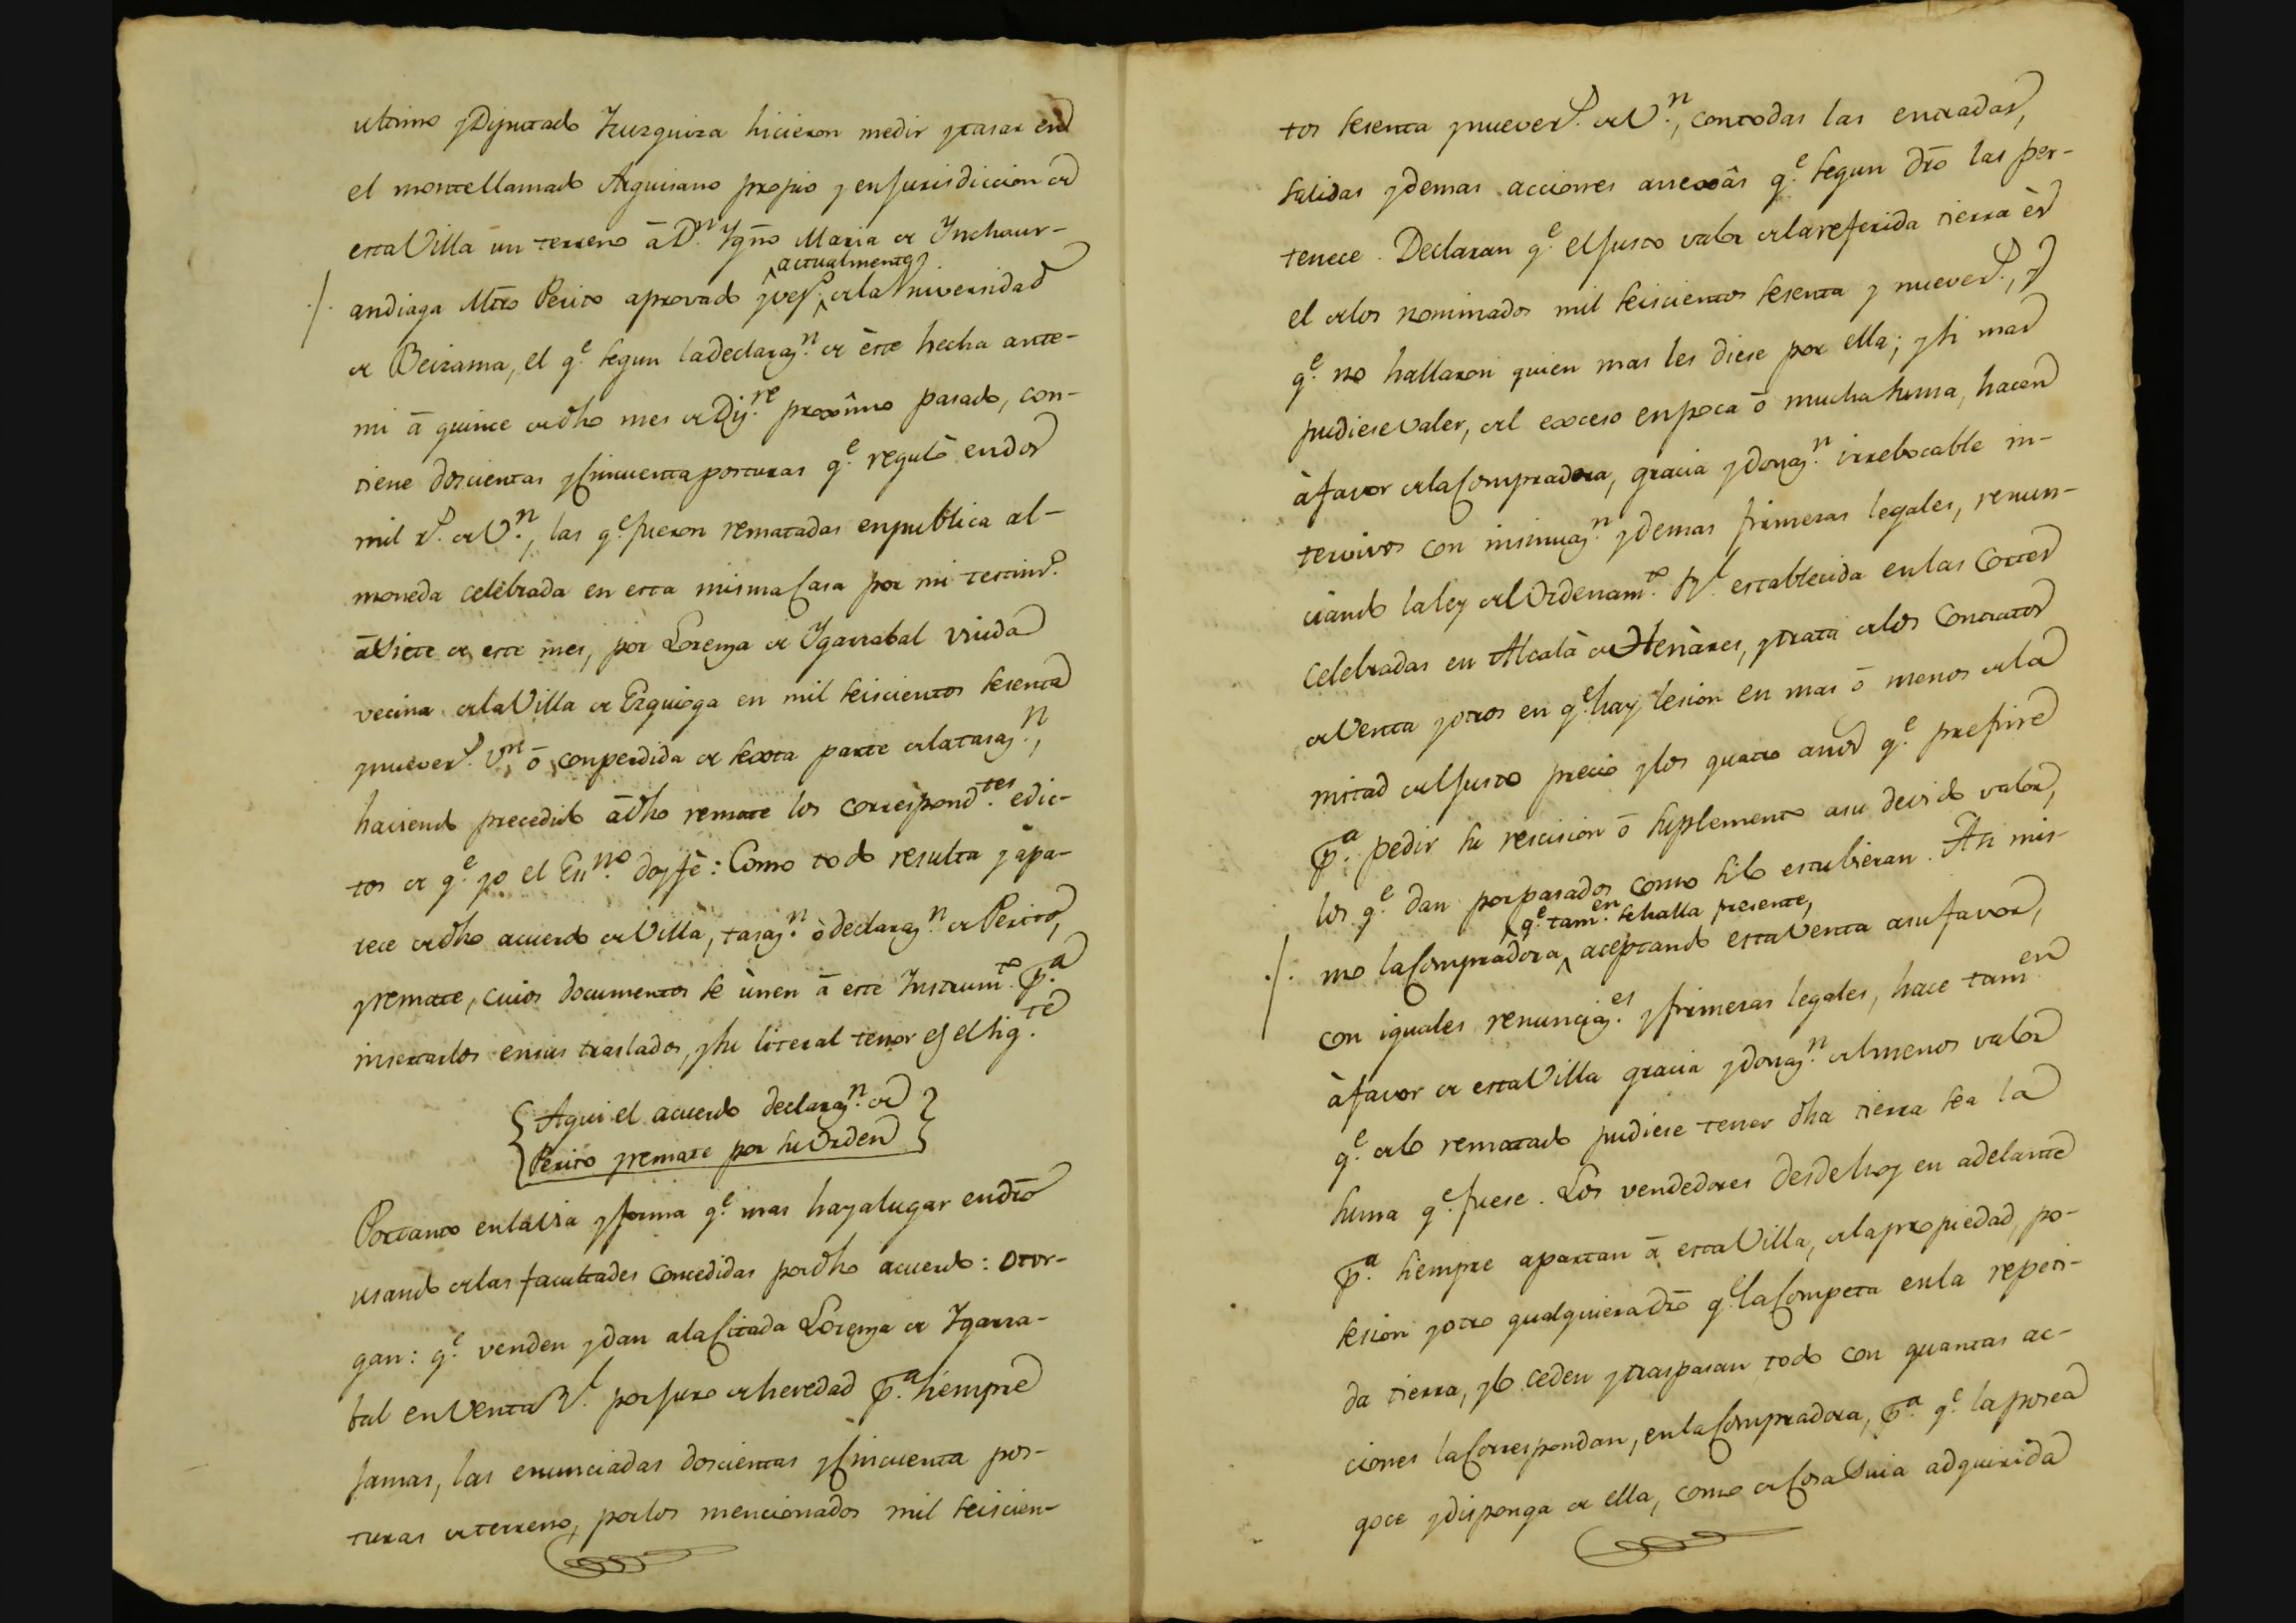 ultimo y Diputado Yzuzquiza hicieron medir y tasar en
el monte llamado Arguisano propio y en Jurisdiccion de
esta Villa un terreno â Dn. Ygno Maria de Ynchaur-
actualmente
./. andiaga Mtro Perito aprovado y veso. de la Vniversidad
de Beizama, el qe. segun la declarazn. de èste hecha ante-
mi â quince de dho mes de Dizre. proxîmo pasado, con-
tiene doscientas y Cinquenta posturas qe. regulò en dos
mil rs. de Vn., las qe. fueron rematadas en publica al-
moneda celebrada en esta misma Casa por mi testimo.
â Siete de este mes, por Lorenza de Ygarzabal viuda
vecina de la Villa de Ezquioga en mil seiscientos sesenta
y nueve rs. Vn. ô con perdida de sexta parte de la tasazn.,
haviendo precedido â dho remate los correspondtes. edic-
tos de qe. yo el Esno. doy fè: Como todo resulta y àpa-
rece de dho acuerdo de Villa, tasazn. ò declarazn. de Perito,
y remate, cuios documentos se ùnen â este Ynstrumto. pa.
insertarlos en sus traslados, y su literal tenor es el sigte.
Aqui el acuerdo declarazn. de
Perito y remate por su Orden
Por tanto en la via y forma qe. mas haya lugar en dro
usando de las facultades concedidas por dho acuerdo: Otor-
gan: qe. venden y dan a la Citada Lorenza de Ygarza-
bal en Venta Rl. por Juro de heredad pa. siempre
Jamas, las enunciadas doscientas y Cincuenta pos-
turas de terreno, por los mencionados mil seiscien-
tos sesenta y nueve rs. de Vn., con todas las entradas,
salidas y demas acciones anexâs qe. segun dro las per-
tenece. Declaran qe. el Justo valor de la referida tierra ès
el de los nominados mil seiscientos sesenta y nueve rs., y
qe. no hallaron quien mas les diese por ella; y si mas
pudiese valer, del exceso en poca ô mucha suma, hacen
à favor de la Compradora, gracia y donazn. irrebocable in-
tervivos con insinuazn. y demas firmezas legales, renun-
ciando la ley del Ordenamto. Rl. establecida en las Cortes
celebradas en Alcalà de Henàres, y trata de los Contratos
de Venta y otros en qe. hay lesion en mas ô menos de la
mitad del Justo precio y los quatro años qe. prefine
pa. pedir su rescision ô suplemento a su devido valor,
los qe. dan por pasados como si lo estubieran. Asi mis-
qe. tamen. se halla presente,
./. mo la Compradora, aceptando esta Venta a su favor,
con iguales renunciazes. y firmezas legales, hace tamen.
à favor de esta Villa gracia y donazn. del menos valor
qe. de lo rematado pudiese tener dha tierra sea la
suma qe. fuese. Los vendedores desde hoy en adelante
pa. siempre apartan â esta Villa, de la propiedad, po-
sesion y otro qualquiera dro qe. la Competa en la repeti-
da tierra, y lo ceden y traspasan todo con quantas ac-
ciones la Correspondan, en la Compradora, pa. qe. la posea
goce y disponga de ella, como de Cosa Suia adquirida